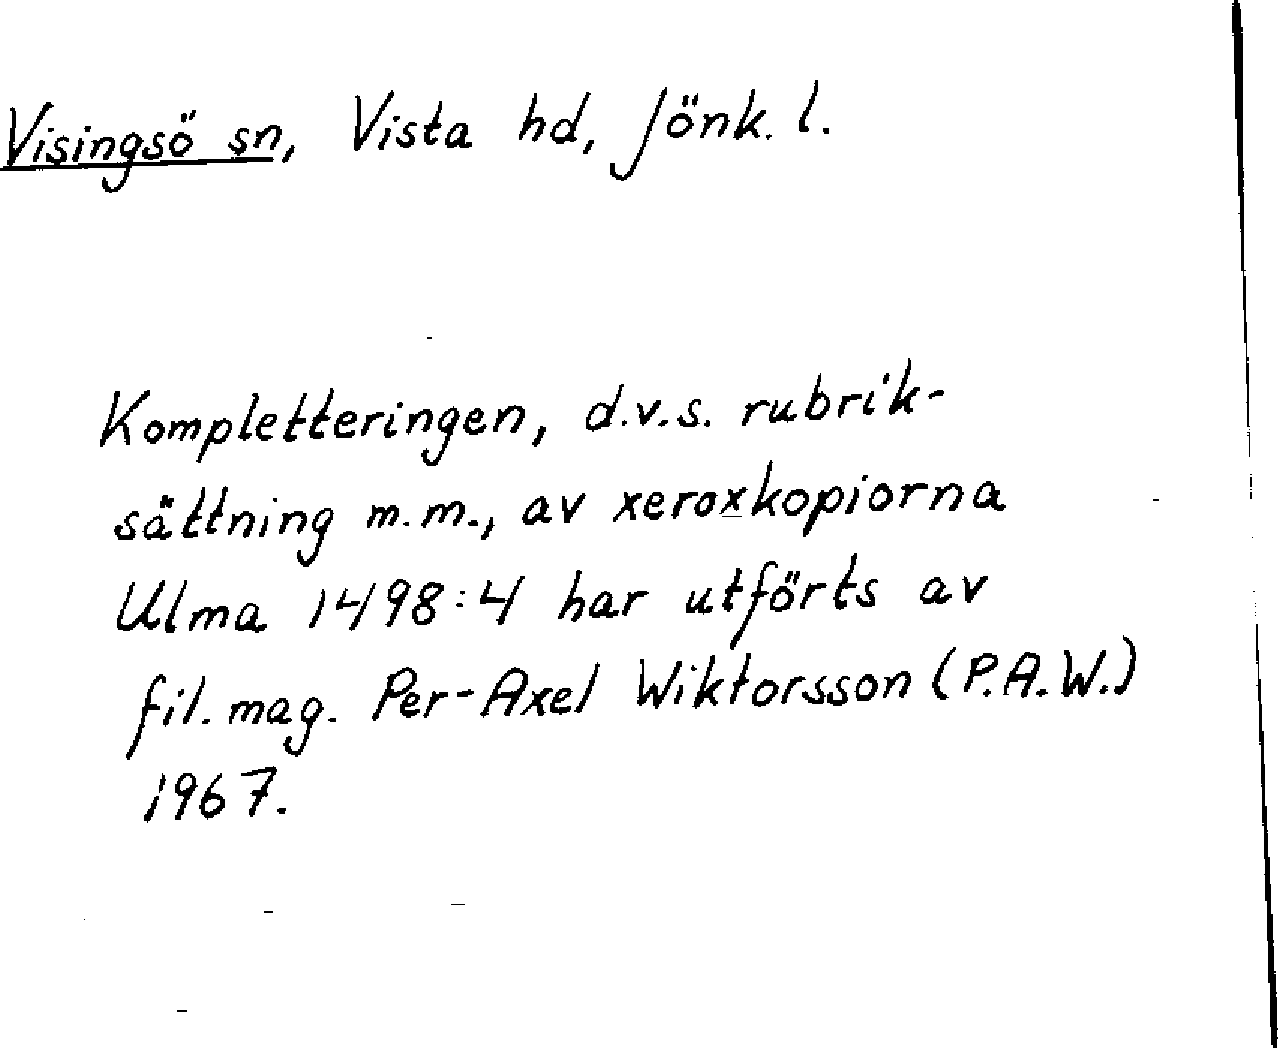 Visingsö sn, Vista hd, Jönk. l.
Kompletteringen, d.v.s. rubrik-
sättning m.m., av xeroxkopiorna
Ulma 1498:4 har utförts av
fil. mag. Per-Axel Wiktorsson (P.A.W.)
1967.